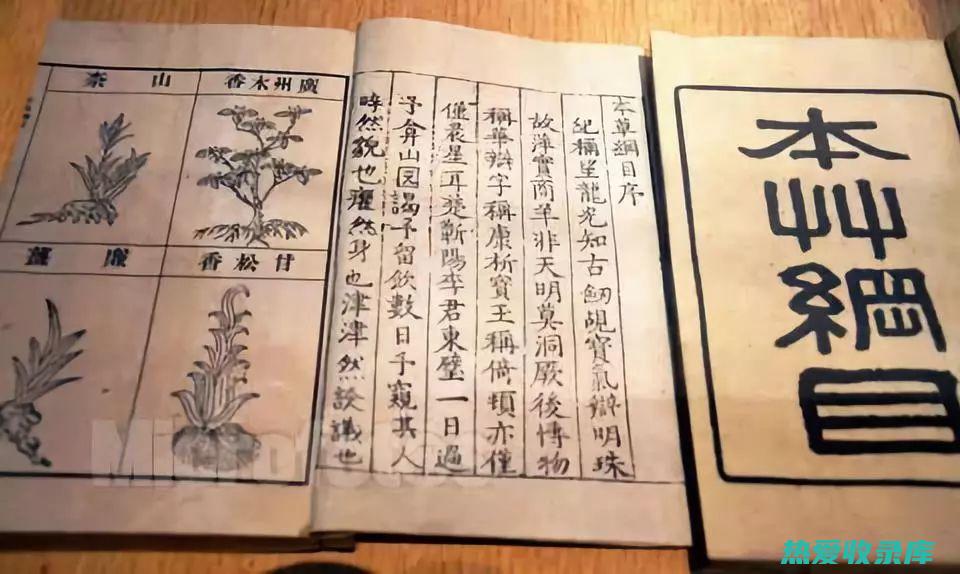 本艸綱目
本草綱目序
紀稱望龍光知古劒覘寶氣辯明珠
故萍實商羊非天明莫洞厥後博物
稱華辯字稱康析寶玉稱倚頓亦僅
僅晨星耳楚蘄陽李君東璧一日過
予弇山園謁予留飲數日予窺其人
睟然貌也癯然身也津津然談議也
廣州木香
山柰
甘松香
廉薑
热爱收录库